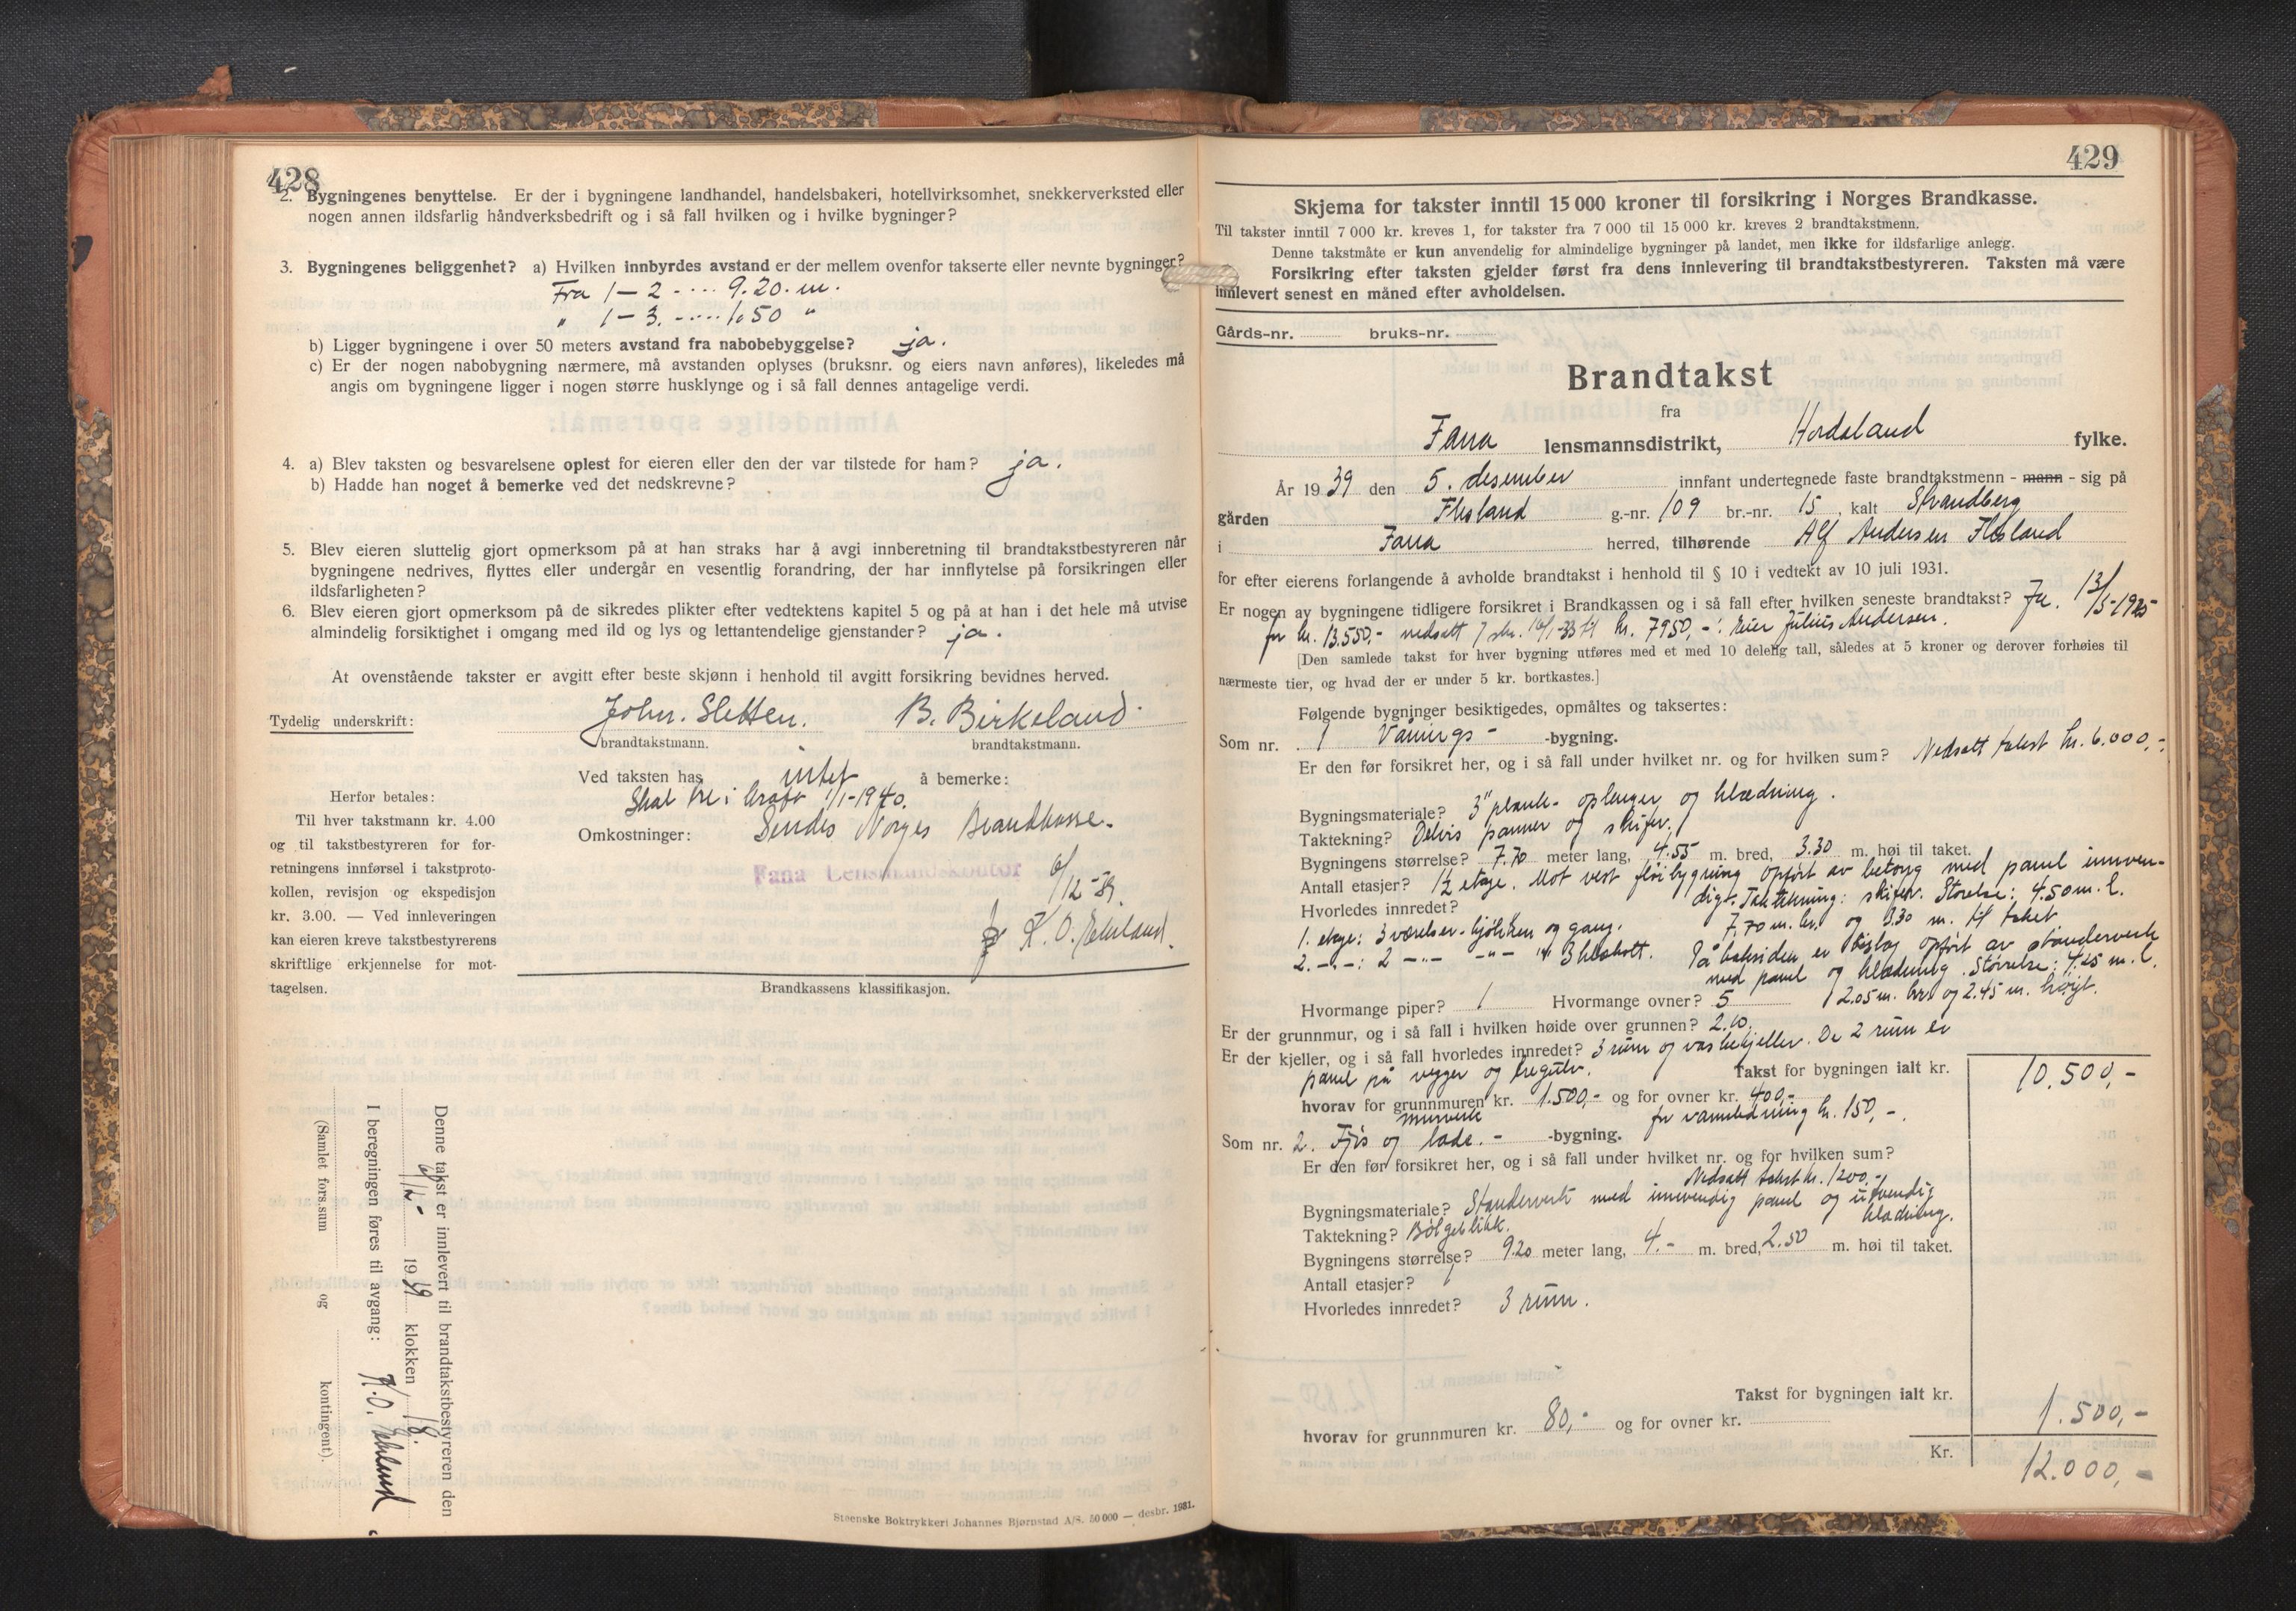 428
2. Bygningenes benyttelse. Er der i bygningene landhandel, handelsbakeri, hotellvirksomhet, snekkerverksted eller
nogen annen ildsfarlig håndverksbedrift og i så fall hvilken og i hvilke bygninger?
3. Bygningenes beliggenhet? a) Hvilken innbyrdes avstand er der mellem ovenfor takserte eller nevnte bygninger?
Fra 1 - 2 - .... 9.20. m.
" 1 - 3. - .... 1.50 "
b) Ligger bygningene i over 50 meters avstand fra nabobebyggelse? ja.
c) Er der nogen nabobygning nærmere, må avstanden oplyses (bruksnr. og eiers navn anføres), likeledes må
angis om bygningene ligger i nogen større husklynge og i så fall dennes antagelige verdi.
4. a) Blev taksten og besvarelsene oplest for eieren eller den der var tilstede for ham? ja.
b) Hadde han noget å bemerke ved det nedskrevne?
5. Blev eieren sluttelig gjort opmerksom på at han straks har å avgi innberetning til brandtakstbestyreren når
bygningene nedrives, flyttes eller undergår en vesentlig forandring, der har innflytelse på forsikringen eller
ildsfarligheten?
6. Blev eieren gjort opmerksom på de sikredes plikter efter vedtektens kapitel 5 og på at han i det hele må utvise
almindelig forsiktighet i omgang med ild og lys og lettantendelige gjenstander? ja.
At ovenstående takster er avgitt efter beste skjønn i henhold til avgitt forsikring bevidnes herved.
Tydelig underskrift: John. Sletten. B. Birkeland.
brandtakstmann. brandtakstmann.
Ved taksten has intet å bemerke:
Skal tre i kraft 1/1-1940.
Omkostninger: Sendes Norges Brandkasse.
Fana Lensmannskontor
6/12-39.
Herfor betales:
Til hver takstmann kr. 4.00
og til takstbestyreren for for-
retningens innførsel i takstproto-
kollen, revisjon og ekspedisjon
kr. 3.00. — Ved innleveringen
kan eieren kreve takstbestyrerens
skriftlige erkjennelse for mot-
tagelsen.
Brandkassens klassifikasjon.
Denne takst er innlevert til brandtakstbestyreren den
6/12- 1939 klokken 18.
I beregningen føres til avgang:
(Samlet fors.sum og kontingent).
Steenske Boktrykkeri Johannes Bjørnstad A/S. 50 000 — desbr. 1931.
429
Skjema for takster inntil 15 000 kroner til forsikring i Norges Brandkasse.
Til takster inntil 7 000 kr. kreves 1, for takster fra 7 000 til 15 000 kr. kreves 2 brandtakstmenn.
Denne takstmåte er kun anvendelig for almindelige bygninger på landet, men ikke for ildsfarlige anlegg.
Forsikring efter taksten gjelder først fra dens innlevering til brandtakstbestyreren. Taksten må være
innlevert senest en måned efter avholdelsen.
Gårds-nr. bruks-nr.
Brandtakst
fra
Fana lensmannsdistrikt, Hordaland fylke.
År 1939 den 5. desember innfant undertegnede faste brandtakstmenn - mann - sig på
gården Flesland g.-nr. 109 br.-nr. 15, kalt Strandberg
i Fana herred, tilhørende Alf Andersen Flesland
for efter eierens forlangende å avholde brandtakst i henhold til § 10 i vedtekt av 10 juli 1931.
Er nogen av bygningene tidligere forsikret i Brandkassen og i så fall efter hvilken seneste brandtakst? Ja. 13/5-1925
for kr. 13.550,- nedsatt 16/1-33 til kr. 7950,-. Eier Julius Andersen.
[Den samlede takst for hver bygning utføres med et med 10 delelig tall, således at 5 kroner og derover forhøies til
nærmeste tier, og hvad der er under 5 kr. bortkastes.]
Følgende bygninger besiktigedes, opmåltes og taksertes:
Som nr. 1 Vånings- -bygning.
Er den før forsikret her, og i så fall under hvilket nr. og for hvilken sum? Nedsatt takst kr. 6.000,-
Bygningsmateriale? 3" plank- oplenger og kledning.
Taktekning? Delvis panner og skifer.
Bygningens størrelse? 7.70 meter lang, 4.55 m. bred, 3.30 m. høi til taket.
Antall etasjer? 1½ etage. Mot vest fløibygning opført av betong med panel innven-
digt. Taktekning: skifer. Størelse: 4.50 m. l.
Hvorledes innredet? 7.70 m. br. og 3.30 m. til taket
1. etage: 3 værelser, kjøkken og gang.
2. -"-: 2 -"- -"- 3 kleskott. På baksiden er bislag opført av stenderverk
med panel og kledning. Størrelse: 4.25 m. l.
Hvormange piper? 1 Hvormange ovner? 5 2.05 m. br. og 2.45 m. høyt.
Er der grunnmur, og i så fall i hvilken høide over grunnen? 2.10.
Er der kjeller, og i så fall hvorledes innredet? 3 rum og vaskekjeller. De 2 rum er
panel på vegger og tregulv.
Takst for bygningen ialt kr. 10.500,-
hvorav for grunnmuren kr. 1.500,- og for ovner kr. 400,-
murverk for vannledning kr. 150,-.
Som nr. 2. Fjøs og lade. - -bygning.
Er den før forsikret her, og i så fall under hvilket nr. og for hvilken sum?
Nedsatt takst kr. 1200.-
Bygningsmateriale? Stenderverk med innvendig panel og utvendig
kledning.
Taktekning? Bølgeblikk.
Bygningens størrelse? 9.20 meter lang, 4.- m. bred, 2.50 m. høi til taket.
Antall etasjer?
Hvorledes innredet? 3 rum.
Takst for bygningen ialt kr. 1.500,-
hvorav for grunnmuren kr. 80,- og for ovner kr.
Kr. 12.000,-